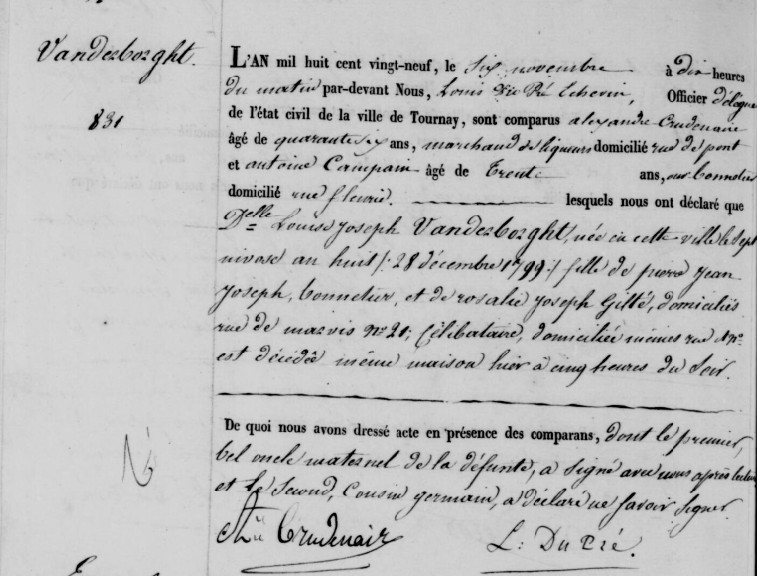 Vanderborght.
831
L'AN mil huit cent vingt-neuf, le six novembre à dix heures
du matin par-devant Nous, Louis Du Pré Echevin, Officier délégué
de l'état civil de la ville de Tournay, sont comparus alexandre Crudenaire
âgé de quarante six ans, marchand de liqueurs domicilié rue de pont
et antoine Campain âgé de Trente ans, ouv. bonnetier
domicilié rue fleurie. lesquels nous ont déclaré que
Delle Louise joseph Vanderborght, née en cette ville le Sept
nivose an huit /: 28 décembre 1799 :/ fille de pierre jean
joseph, bonnetier, et de rosalie joseph Gitté, domiciliés
rue de marvis no. 20, Célibataire, domiciliée mêmes rue & no.
est décédée même maison hier à cinq heures du Soir.
De quoi nous avons dressé acte en présence des comparans, dont le premier,
bel oncle maternel de la défunte, a signé avec nous après lecture
et le Second, Cousin germain, a déclaré ne savoir Signer.
Crudenair
L: Du Pré.